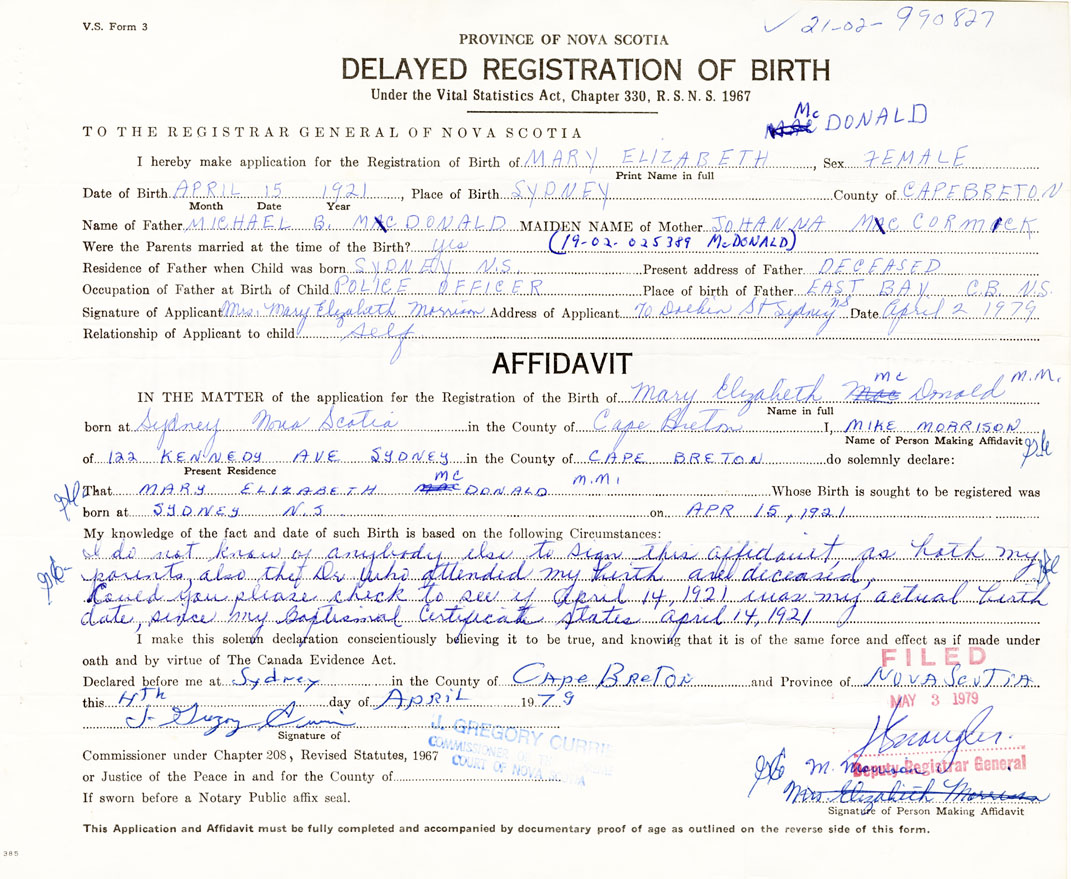 V.S. Form 3
✓ 21-02-990827
PROVINCE OF NOVA SCOTIA
DELAYED REGISTRATION OF BIRTH
Under the Vital Statistics Act, Chapter 330, R.S.N.S. 1967
Mc
Mac DONALD
TO THE REGISTRAR GENERAL OF NOVA SCOTIA
I hereby make application for the Registration of Birth of MARY ELIZABETH, Sex FEMALE
Print Name in full
Date of Birth APRIL 15 1921, Place of Birth SYDNEY County of CAPE BRETON
Month Date Year
Name of Father MICHAEL B. MacDONALD MAIDEN NAME of Mother JOHANNA MacCORMICK
Were the Parents married at the time of the Birth? yes (19-02-025389 McDONALD)
Residence of Father when Child was born SYDNEY N.S. Present address of Father DECEASED
Occupation of Father at Birth of Child POLICE OFFICER Place of birth of Father EAST BAY C.B. N.S.
Signature of Applicant Mrs. Mary Elizabeth Morrison Address of Applicant 70 St Sydney NS Date April 2 1979
Relationship of Applicant to child Self
AFFIDAVIT
Mc M.M.
IN THE MATTER of the application for the Registration of the Birth of Mary Elizabeth Mac Donald
Name in full
born at Sydney Nova Scotia in the County of Cape Breton I, MIKE MORRISON
Name of Person Making Affidavit
of 122 KENNEDY AVE SYDNEY in the County of CAPE BRETON do solemnly declare:
Present Residence
Mc M.M.
That MARY ELIZABETH Mac DONALD Whose Birth is sought to be registered was
born at SYDNEY N.S on APR 15, 1921
My knowledge of the fact and date of such Birth is based on the following Circumstances:
I do not know of anybody else to sign this affidavit as both my
parents, also the Dr. who attended my birth are deceased,
Could you please check to see if April 14, 1921 was my actual birth
date, since my Baptismal Certificate States April 14, 1921
I make this solemn declaration conscientiously believing it to be true, and knowing that it is of the same force and effect as if made under
oath and by virtue of The Canada Evidence Act.
FILED
Declared before me at Sydney in the County of CAPE BRETON and Province of NOVA SCOTIA
this 4th day of APRIL 1979
MAY 3 1979
J. Gregory Currie
Signature of
J. GREGORY CURRIE
COMMISSIONER
COURT OF NOVA SCOTIA
Commissioner under Chapter 208, Revised Statutes, 1967
or Justice of the Peace in and for the County of
Deputy Registrar General
M. Morrison
If sworn before a Notary Public affix seal.
Mrs Elizabeth Morrison
Signature of Person Making Affidavit
This Application and Affidavit must be fully completed and accompanied by documentary proof of age as outlined on the reverse side of this form.
385